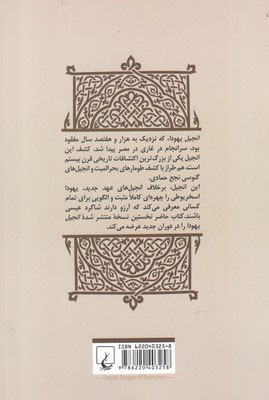 انجیل یهودا، که نزدیک به هزار و هفتصد سال مفقود
بود، سرانجام در غاری در مصر پیدا شد. کشف این
انجیل یکی از بزرگ‌ترین اکتشافات تاریخی قرن بیستم
است، هم‌طراز با کشف طومارهای بحرالمیت و انجیل‌های
گنوسی نجع حمادی.
این انجیل، برخلاف انجیل‌های عهد جدید، یهودا
اسخریوطی را چهره‌ای کاملاً مثبت و الگویی برای تمام
کسانی معرفی می‌کند که آرزو دارند شاگرد عیسی
باشند.کتاب حاضر نخستین نسخهٔ منتشر شدهٔ انجیل
یهودا را در دوران جدید عرضه می‌کند.
ISBN 622040325-8
9 786220 403258